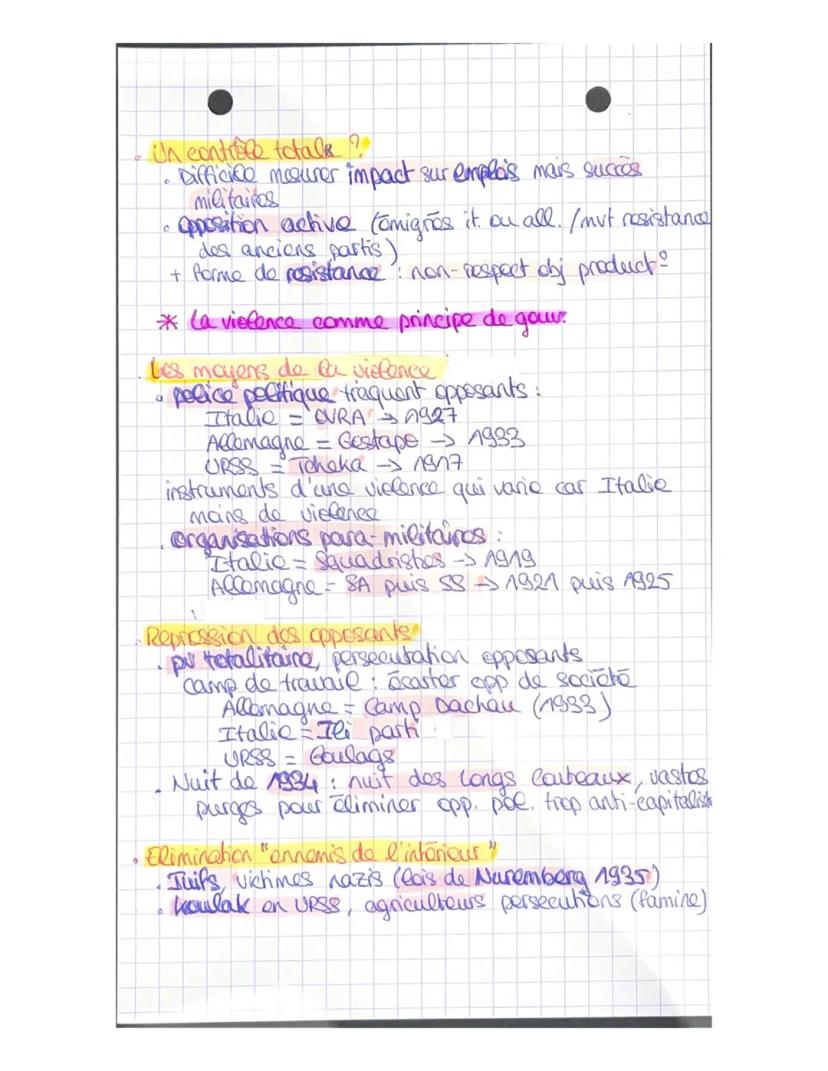 . Un contrôle totale ?
. Difficile mesurer impact sur emplois mais succès
militaires
. opposition active (émigrés it. ou all. / mvt resistance
des anciens partis)
+ forme de resistance : non-respect obj product°
* La violence comme principe de gouv.
. Les moyens de la violence
. police politique traquent opposants :
Italie = OVRA → 1927
Allemagne = Gestapo → 1933
URSS = Tcheka → 1917
instruments d'une violence qui varie car Italie
moins de violence
. organisations para-militaires :
Italie = Squadristes → 1919
Allemagne = SA puis SS → 1921 puis 1925
. Repression des opposants
. pv totalitaire, persecutation opposants
camp de travail : écarter opp de société
Allemagne = Camp Dachau (1933)
Italie = parti
URSS = Goulags
. Nuit de 1934 : nuit des longs couteaux, vastes
purges pour éliminer opp. pol. trop anti-capitalist
. Elimination "ennemis de l'intérieur"
. Juifs, victimes nazis (lois de Nuremberg 1935)
. koulak en URSS, agriculteurs persecutions (famine)